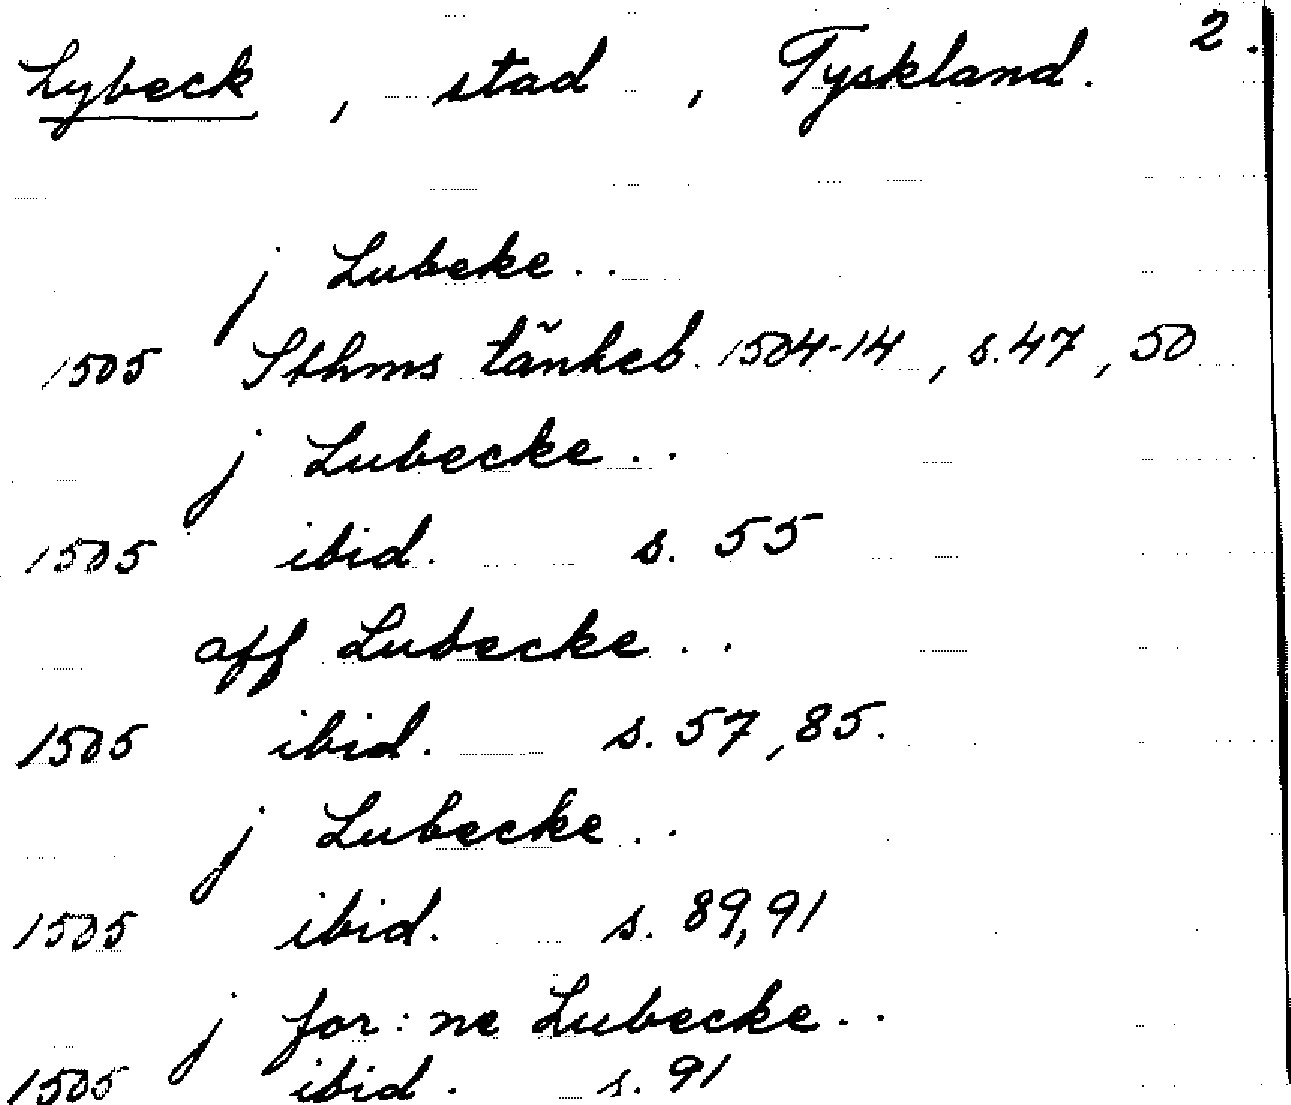 Lybeck, stad, Tyskland. 2.
j Lubeke..
1505 Sthms tänkeb. 1504-14, s.47, 50
j Lubecke..
1505 ibid. s. 55
aff Lubecke..
1505 ibid. s. 57, 85.
j Lubecke..
1505 ibid. s. 89, 91
j for:ne Lubecke..
1505 ibid. s. 91